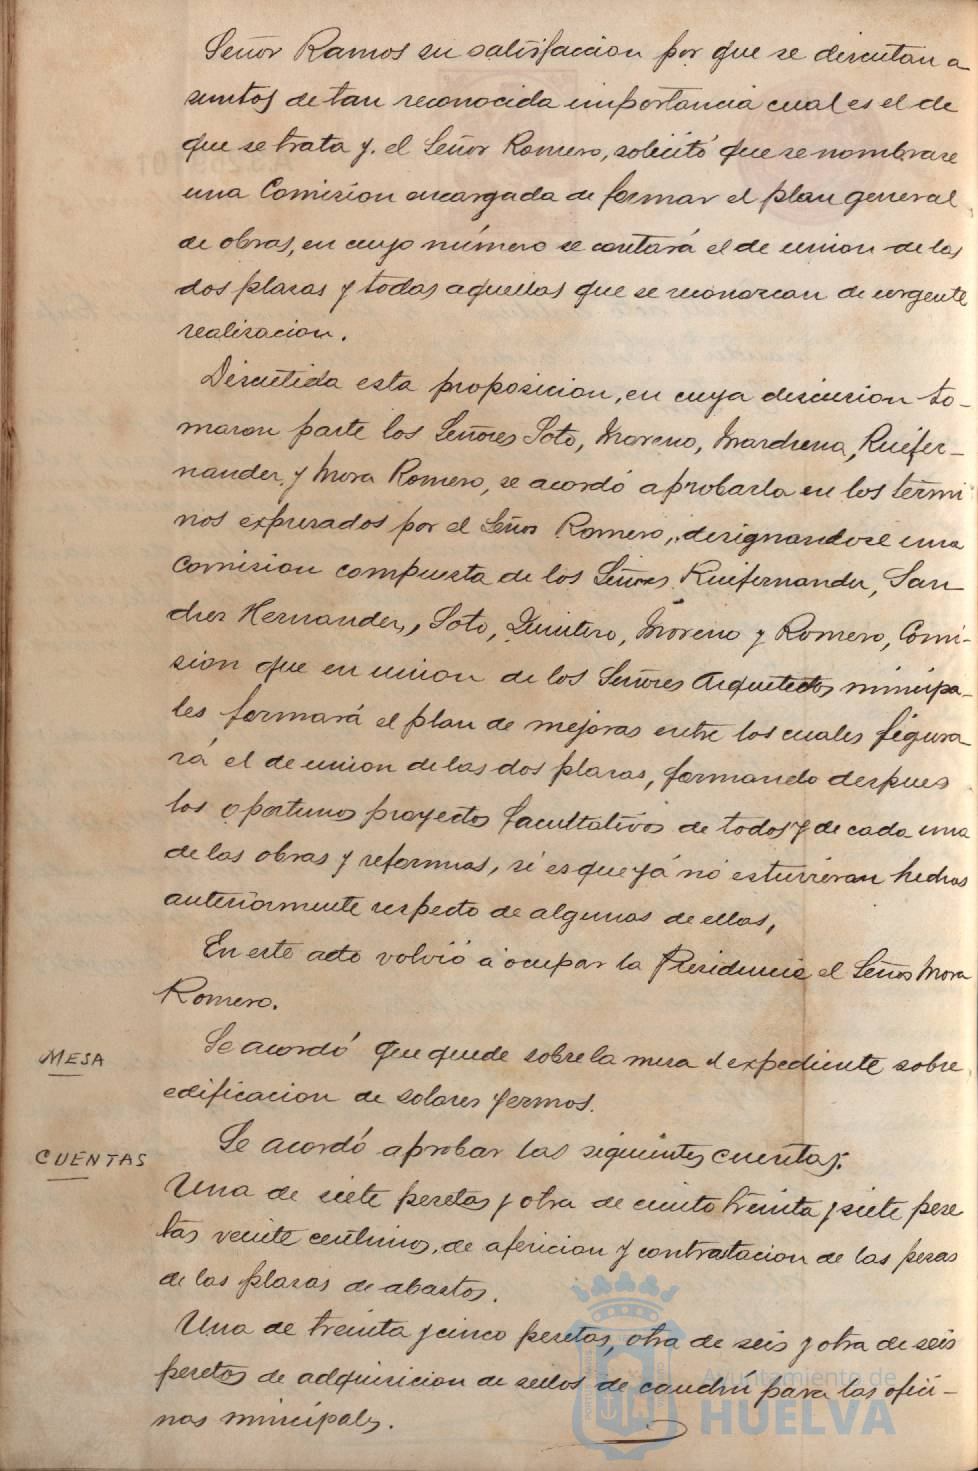 Señor Ramos su satisfaccion por que se discutan a
suntos de tan reconocida importancia cual es el de
que se trata y. el Señor Romero, solicitó que se nombrase
una Comision encargada de formar el plan general
de obras, en cuyo número se contará el de union de las
dos plazas y todas aquellas que se reconozcan de urgente
realizacion.
Discutida esta proposicion, en cuya discusion to-
maron parte los Señores Soto, Moreno, Marchena, Ruifer-
nandez, y Mora Romero, se acordó aprobarla en los térmi
nos expresados por el Señor Romero, designandose una
Comision compuesta de los Señores Ruifernandez, San
chez Hernandez, Soto, Quintero, Moreno y Romero, Comi-
sion que en union de los Señores Arquitectos minicipa-
les formará el plan de mejoras entre los cuales figura-
rá el de union de las dos plazas, formando despues
los oportunos proyectos facultativos de todos y de cada una
de las obras y reformas, si es que yá no estuvieran hechos
anteriormente respecto de algunas de ellas,
En este acto volvió á ocupar la Presidencia el Señor Mora
Romero.
MESA
Se acordó que quede sobre la mesa el expediente sobre
edificacion de solares yermos.
CUENTAS
Se acordó aprobar las siguientes cuentas:
Una de siete pesetas y otra de ciento treinta y siete pese
tas veinte centimos, de afericion y contrastacion de las pesas
de las plazas de abastos.
Una de treinta y cinco pesetas, otra de seis y otra de seis
pesetas de adquisicion de sellos de cauchú para las ofici-
nas minicipales.
Ayuntamiento de
HUELVA